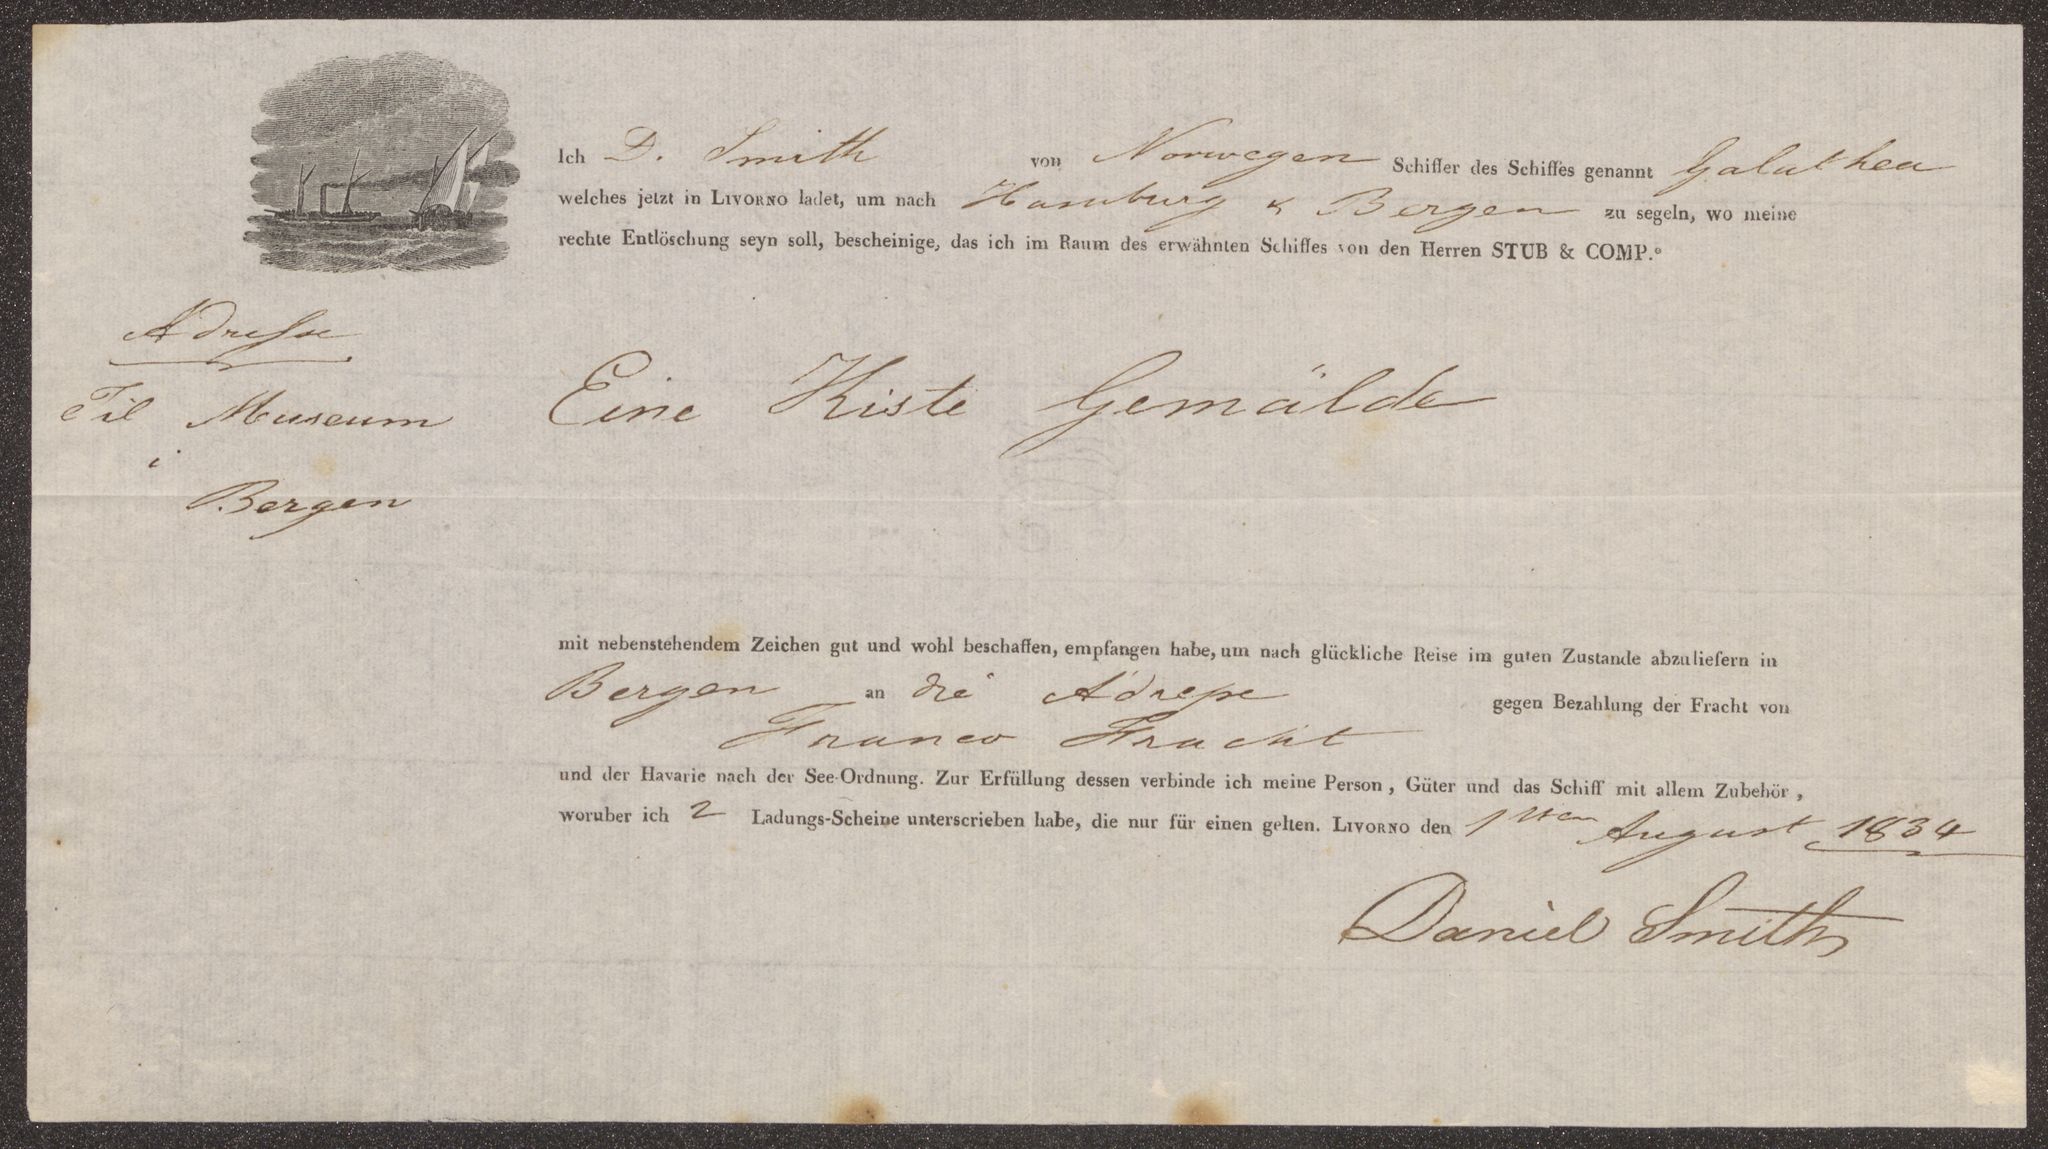 Ich D. Smith von Norwegen Schiffer des Schiffes genannt Galathea
welches jetzt in LIVORNO ladet, um nach Hamburg & Bergen zu segeln, wo meine
rechte Entlöschung seyn soll, bescheinige, das ich im Raum des erwähnten Schiffes von den Herren STUB & COMP.º
Adresse
Til Museum
i
Bergen
Eine Kiste Gemälde
mit nebenstehendem Zeichen gut und wohl beschaffen, empfangen habe, um nach glückliche Reise im guten Zustande abzuliefern in
Bergen an die Adresse gegen Bezahlung der Fracht von
Franco Fracht
und der Havarie nach der See-Ordnung. Zur Erfüllung dessen verbinde ich meine Person, Güter und das Schiff mit allem Zubehör,
woruber ich 2 Ladungs-Scheine unterscrieben habe, die nur für einen gelten. LIVORNO den 1sten August 1834
Daniel Smith